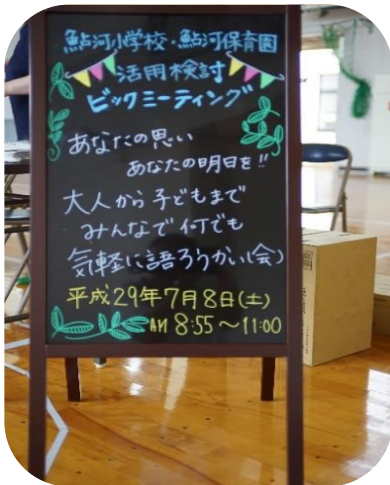 鮎河小学校・鮎河保育園
活用検討
ビックミーティング
あなたの思い
あなたの明日を!!
大人から子どもまで
みんなで何でも
気軽に語ろうかい(会)
平成29年7月8日(土)
AM 8:55〜11:00